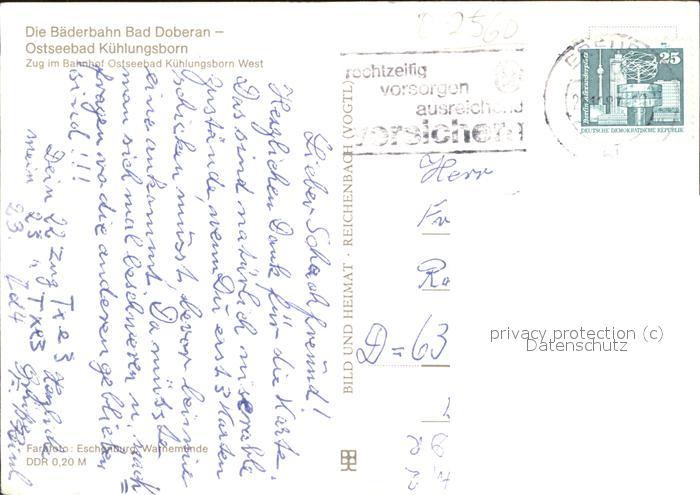 Die Bäderbahn Bad Doberan –
Ostseebad Kühlungsborn
Zug im Bahnhof Ostseebad Kühlungsborn West
Lieber Schachfreund!
Herzlichen Dank für die Karte.
Das sind natürlich miserable
Zustände, wenn Du erst 3 Karten
schicken müsst, bevor bei mir
eine ankommt. Da müsste
man sich mal beschweren u. nach
fragen wo die anderen geblieben
sind!!!
Dein 22 Zug Txe3
mein 23 " Txe3
23. Ld4
Farbfoto: Eschenburg, Warnemünde
DDR 0,20 M
BILD UND HEIMAT · REICHENBACH (VOGTL)
D-2560
rechtzeitig
vorsorgen
ausreichend
versichern
25
Berlin, Alexanderplatz
DEUTSCHE DEMOKRATISCHE REPUBLIK
Herr
Fr
Ra
D=63
privacy protection (c)
Datenschutz